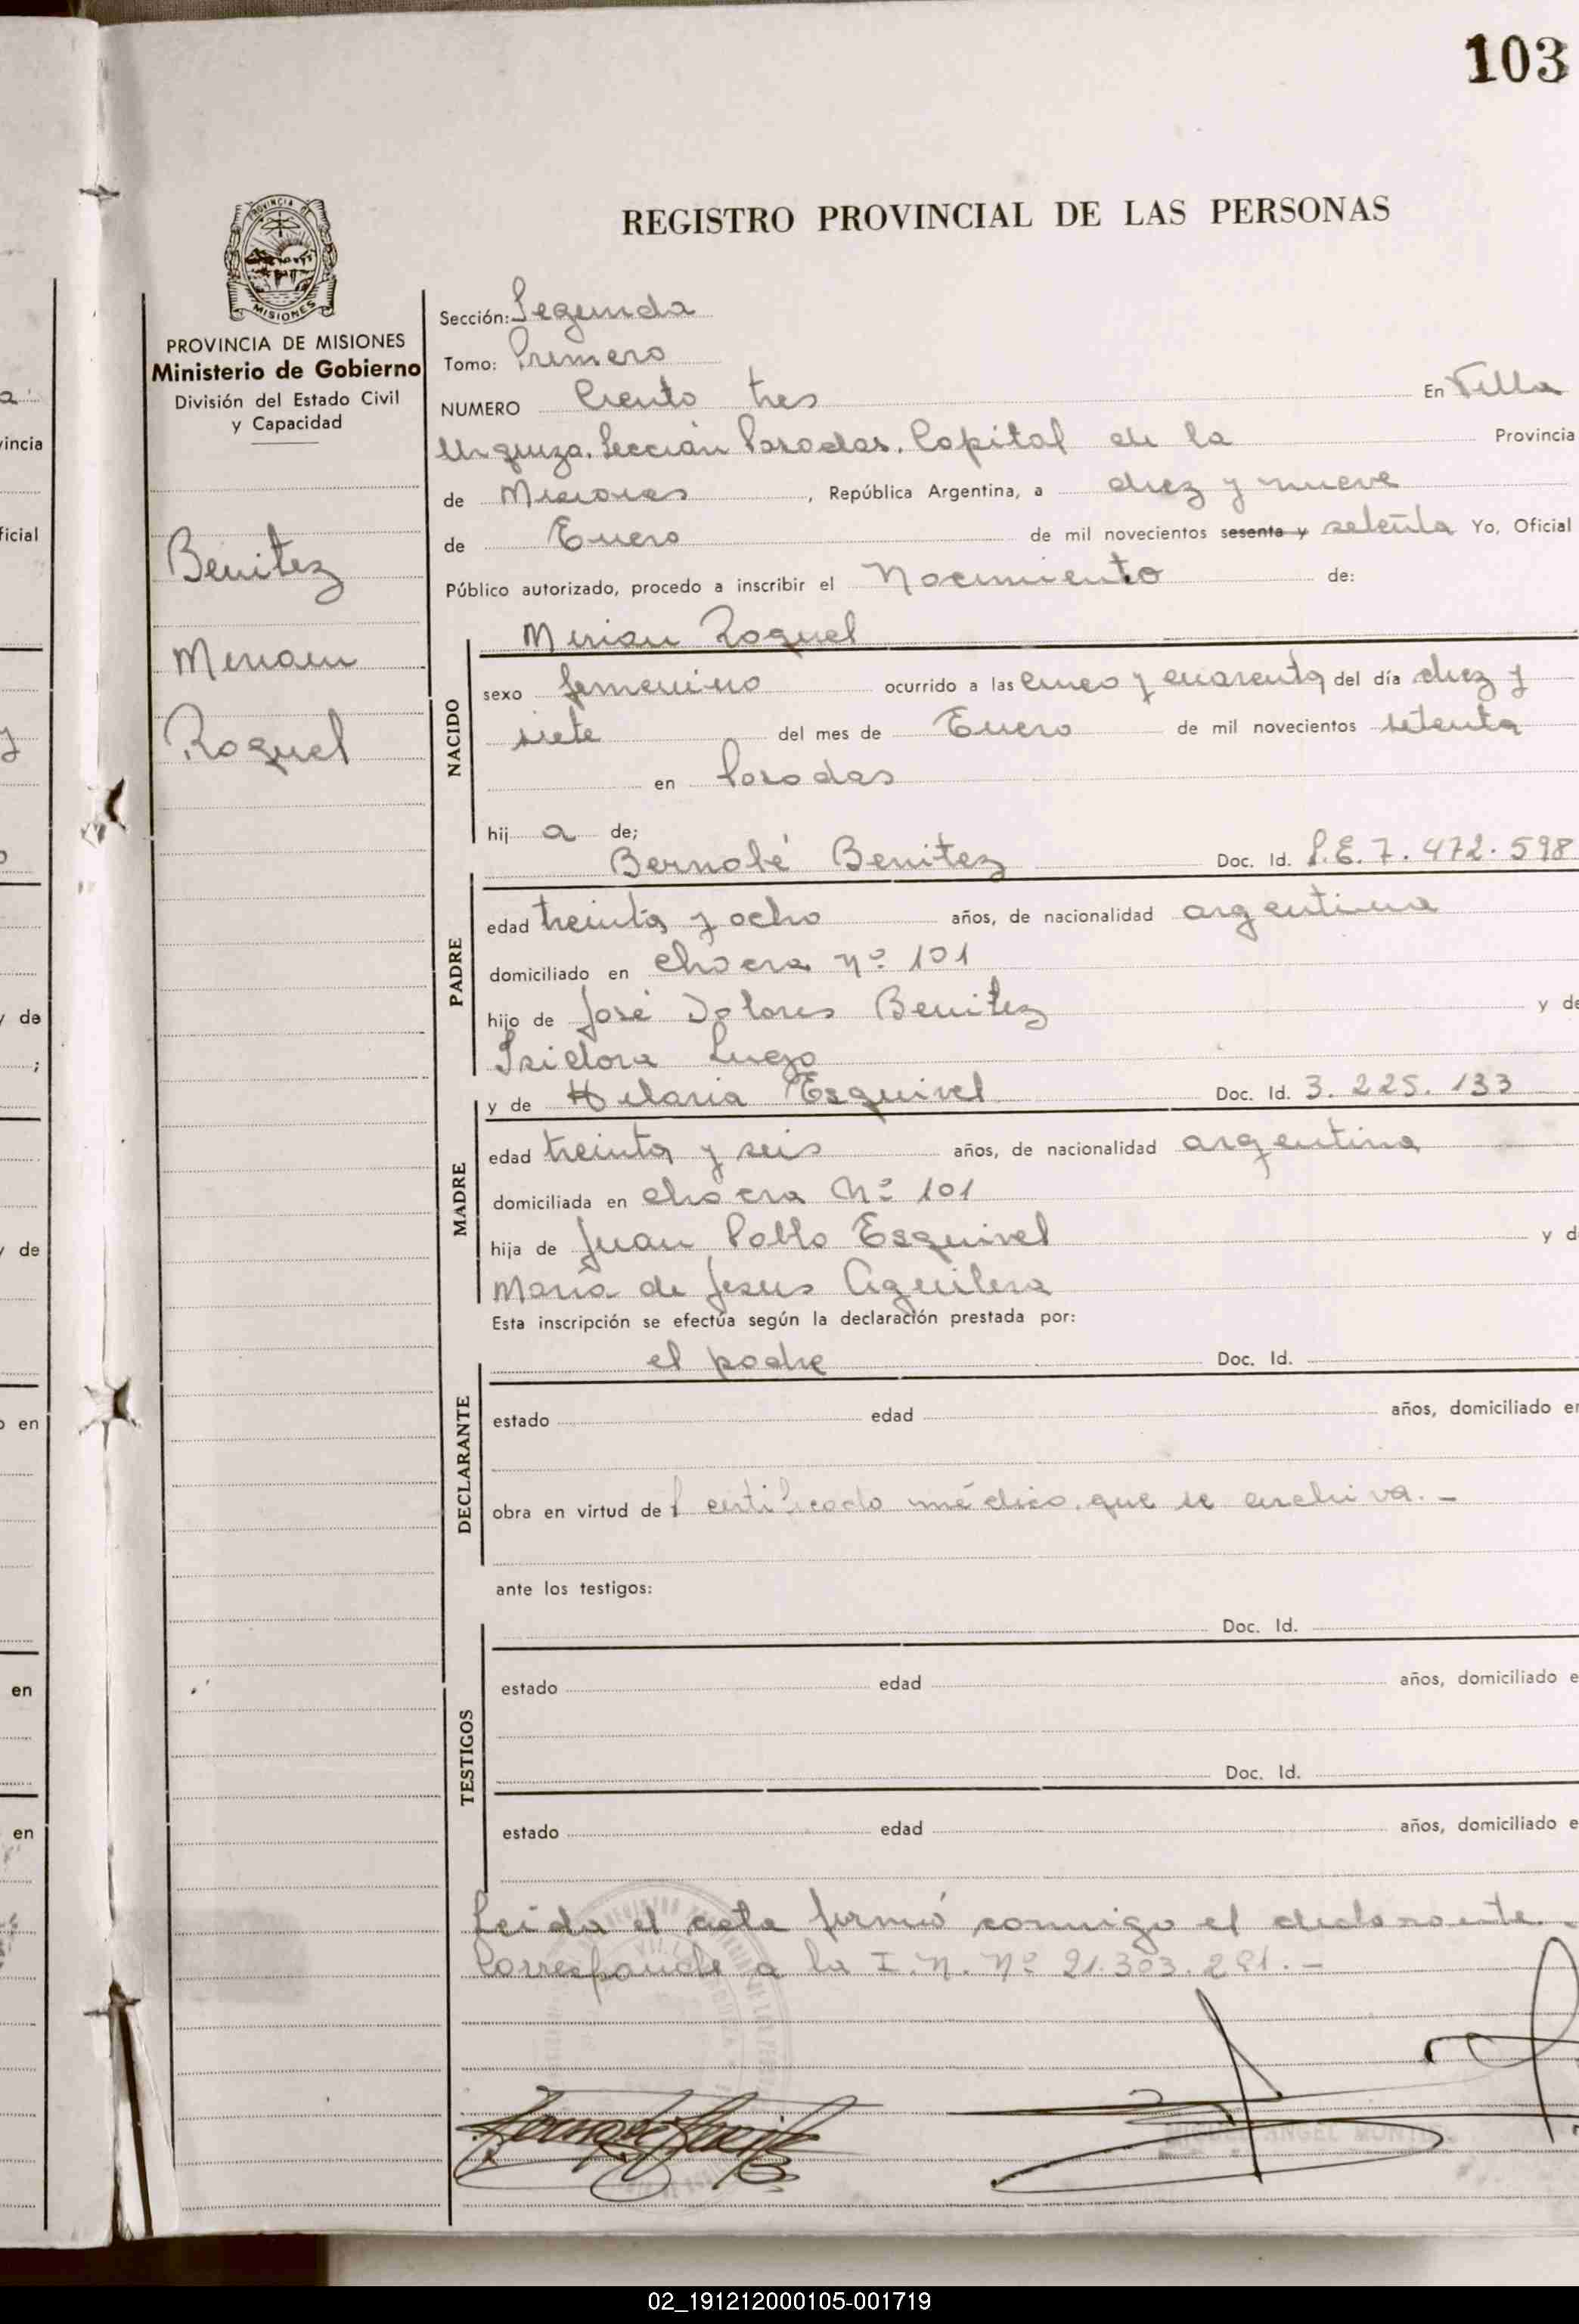 103
REGISTRO PROVINCIAL DE LAS PERSONAS
PROVINCIA DE
MISIONES
PROVINCIA DE MISIONES
Ministerio de Gobierno
División del Estado Civil
y Capacidad
Benitez
Miriam
Raquel
Sección: Segunda
Tomo: Primero
NUMERO Ciento tres En Villa
Urquiza. Sección Posadas. Capital de la Provincia
de Misiones, República Argentina, a diez y nueve
de Enero de mil novecientos sesenta y setenta Yo, Oficial
Público autorizado, procedo a inscribir el Nacimiento de:
NACIDO
Mirian Raquel
sexo femenino ocurrido a las cinco y cuarenta del día diez y
siete del mes de Enero de mil novecientos setenta
en Posadas
hij a de;
PADRE
Bernabé Benitez Doc. Id. 7.472.598
edad treinta y ocho años, de nacionalidad argentina
domiciliado en chacra nº 101
hijo de José Dolores Benitez y de
Isidora Lugo
MADRE
y de Hilaria Esquivel Doc. Id. 3.225.133
edad treinta y seis años, de nacionalidad argentina
domiciliada en chacra Nº 101
hija de Juan Pablo Esquivel y d
María de Jesus Aguilera
Esta inscripción se efectúa según la declaración prestada por:
DECLARANTE
el padre Doc. Id.
estado edad años, domiciliado en
obra en virtud del certificado médico que se archiva.-
ante los testigos:
TESTIGOS
Doc. Id.
estado edad años, domiciliado e
Doc. Id.
estado edad años, domiciliado e
Leída el acta firmó conmigo el declarante.-
Corresponde a la I.N. Nº 21.303.291.-
MIGUEL ANGEL
a
vincia
ficial
y
o
y de
;
y de
o en
en
en
02_191212000105-001719